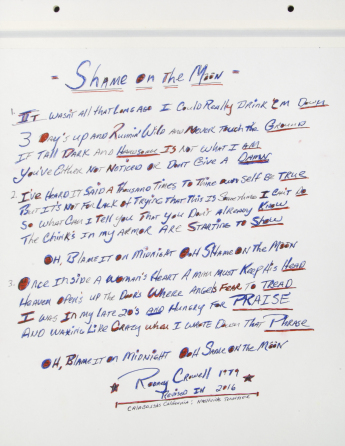 - Shame on the Moon -
1. It wasn't all that long ago I could really drink 'em down
3 Day's up and runnin' wild and never touch the ground
If tall dark and handsome is not what I am
You've either not noticed or don't give a damn
2. I've heard it said a thousand times to thine own self be true
But it's not for lack of trying that this is something I can't do
So what can I tell you that you don't already know
The chink's in my armor are starting to show
Oh, blame it on midnight ooh shame on the moon
3. Once inside a woman's heart a man must keep his head
Heaven open's up the doors where angels fear to tread
I was in my late 20's and hungry for praise
And waxing like crazy when I wrote down that phrase
Oh, blame it on midnight ooh shame on the moon
Rodney Crowell 1979
Revised in 2016